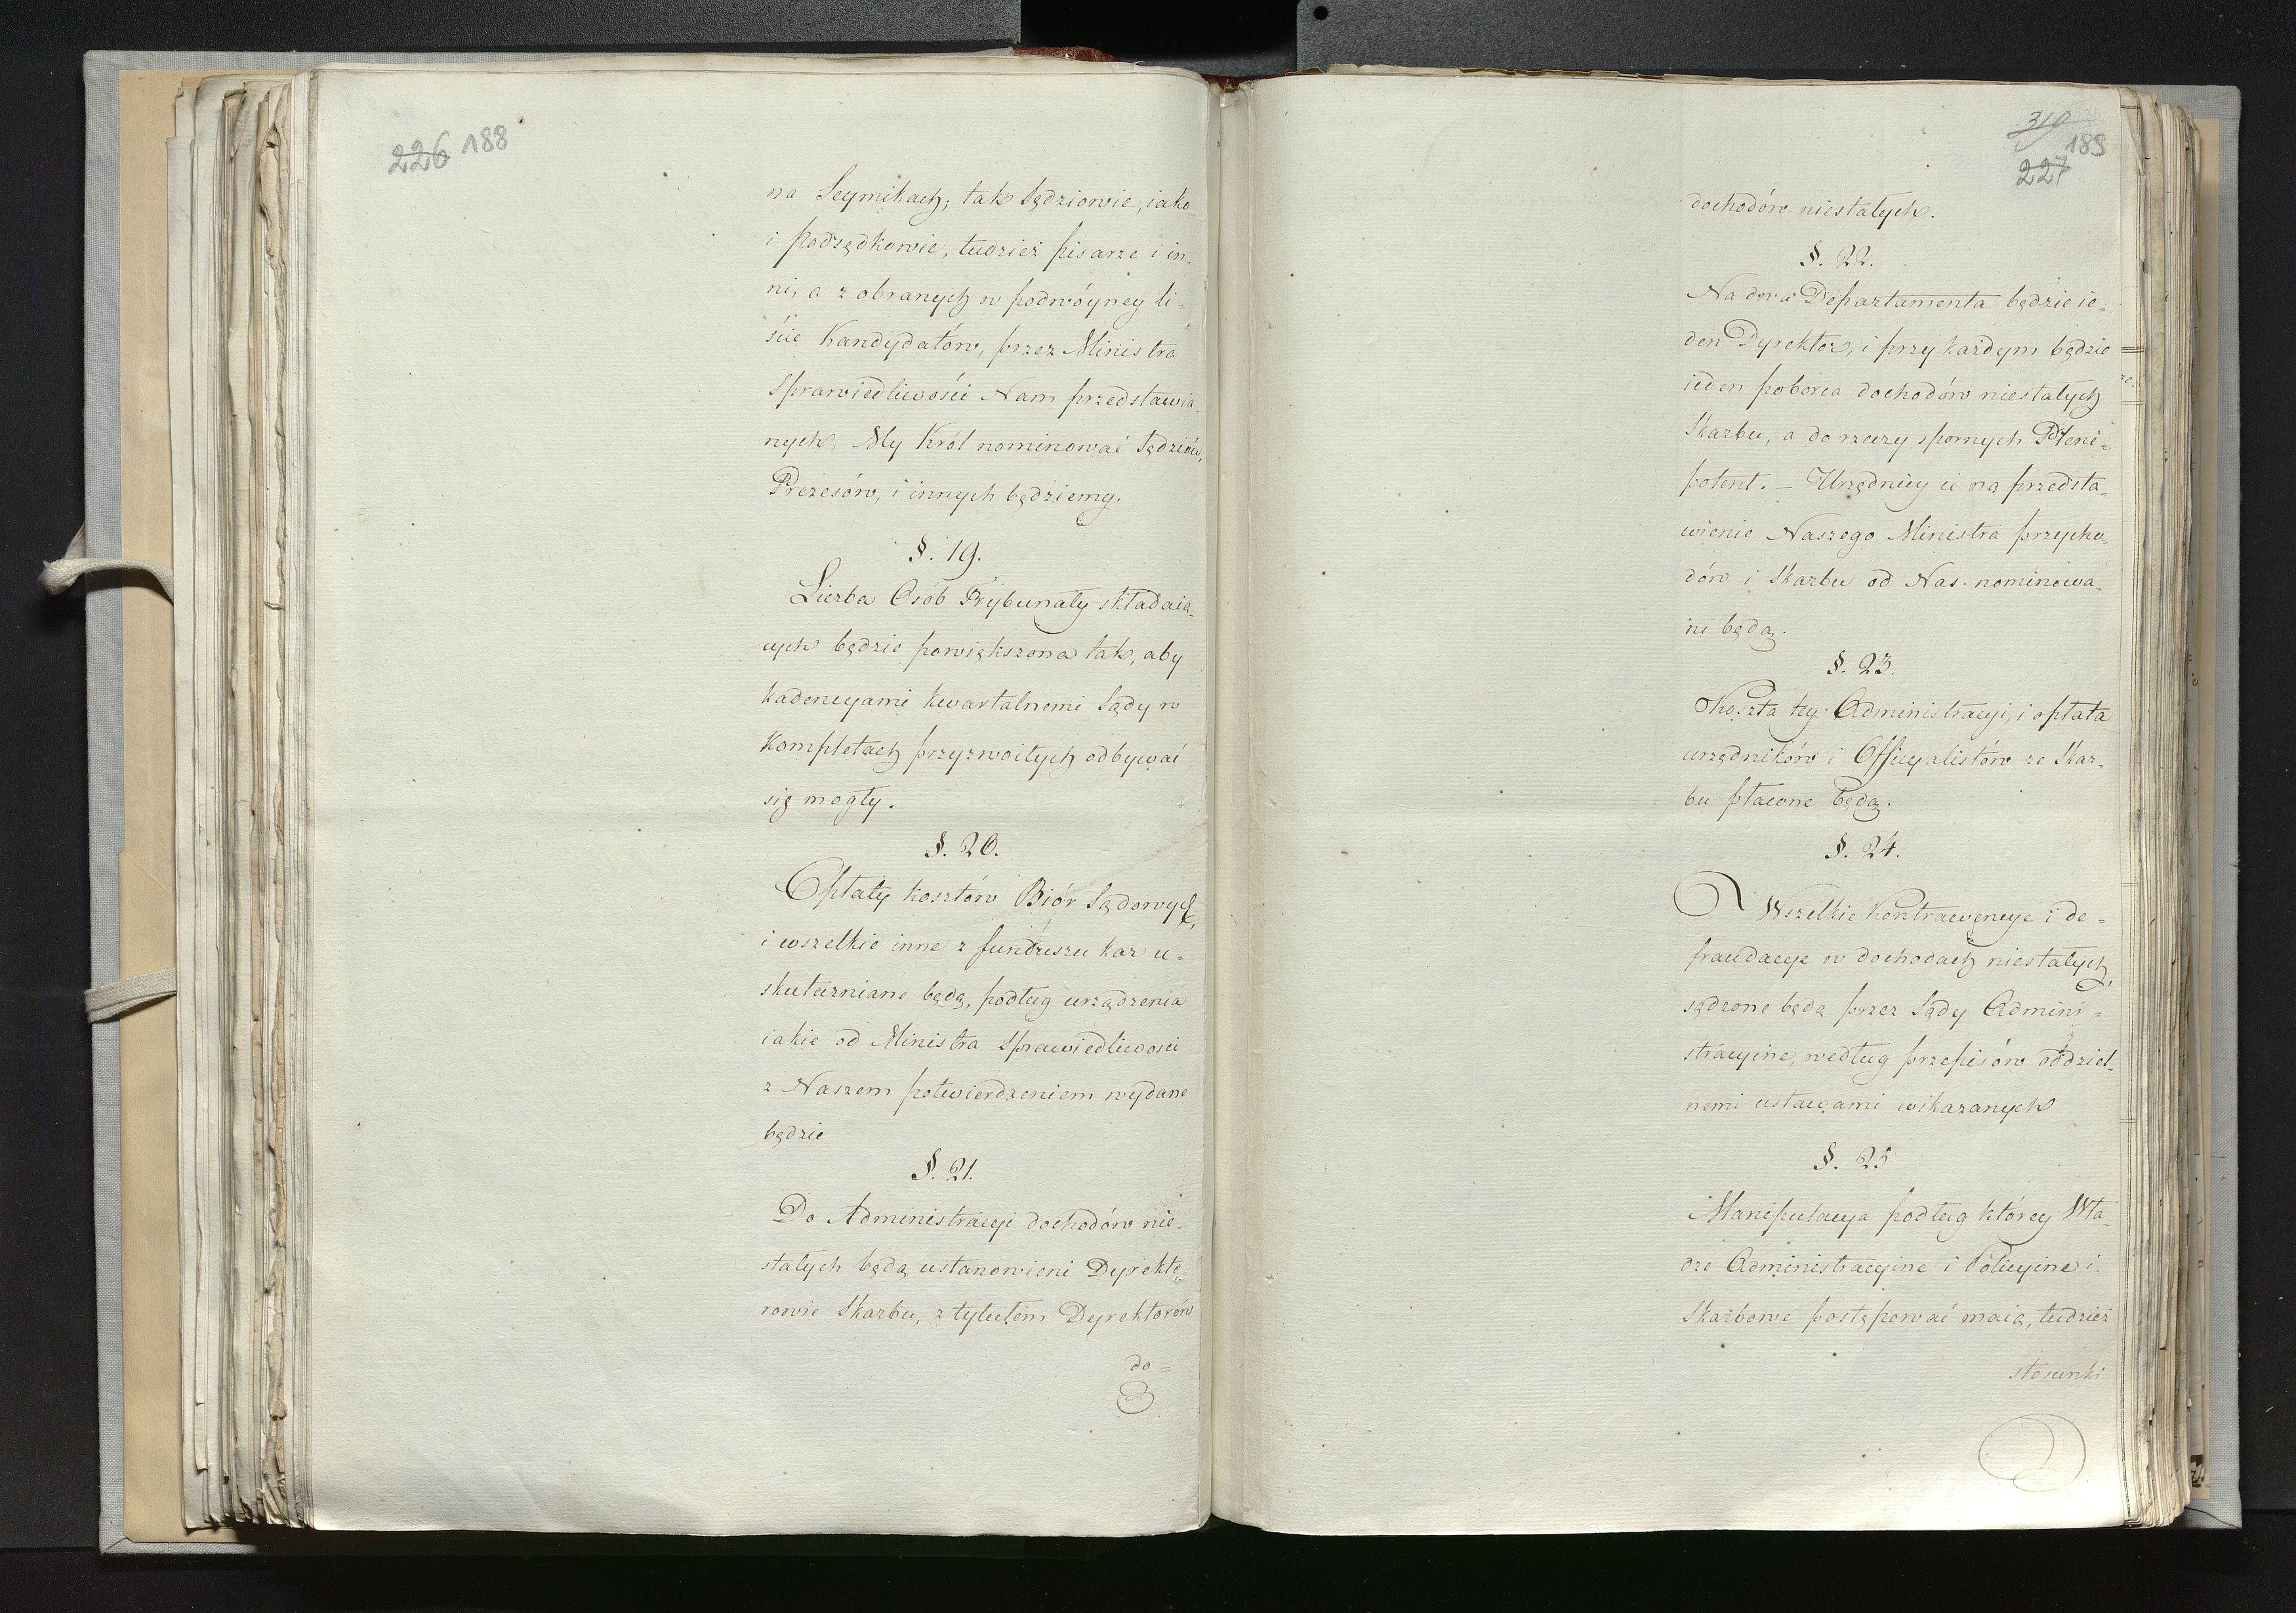 226 188
na Seymikach; tak Sędziowie, iako
i podsędkowie, tudzież pisarze i in-
ni, a z obranych w podwóyney li-
ście Kandydatów, przez Ministra
Sprawiedliwości Nam przedstawia-
nych, My Król nominować Sędziów,
Prezesów, i innych będziemy.
§. 19.
Liczba Osób Trybunały składaią-
cych będzie powiększona tak, aby
kadencyami kwartalnemi Sądy w
Kompletach przyzwoitych odbywać
się mogły.
§. 20.
Opłaty kosztów Biór Sądowych,
i wszelkie inne z funduszu kar u-
skuteczniane będą, podług urządzenia
iakie od Ministra Sprawiedliwosci
z Naszem potwierdzeniem wydane
będzie
§. 21.
Do Administracyi dochodów nie-
stałych będą ustanowieni Dyrekto-
rowie Skarbu, z tytułem Dyrektorów
do=
310
189
227
dochodów niestałych.
§. 22.
Na dwa Departamenta będzie ie-
den Dyrektor, i przy każdym będzie
ieden poborca dochodów niestałych
Skarbu, a do rzeczy spornych Pleni-
potent. – Urzędnicy ci na przedsta-
wienie Naszego Ministra przycho-
dów i Skarbu od Nas nominowa-
ni będą.
§. 23.
Koszta tey Administracyi, i opłata
urzędników i Officyalistów ze Skar-
bu płacone będą.
§. 24.
Wszelkie Kontrawencye i de-
fraudacye w dochodach niestałych,
sądzone będą przez Sądy Admini-
stracyine, według przepisów oddziel-
nemi ustawami wskazanych
§. 25
Manipulacya podług którey Wła-
dze Administracyine i Policyine i
Skarbowe postępować maią, tudzież
stosunki